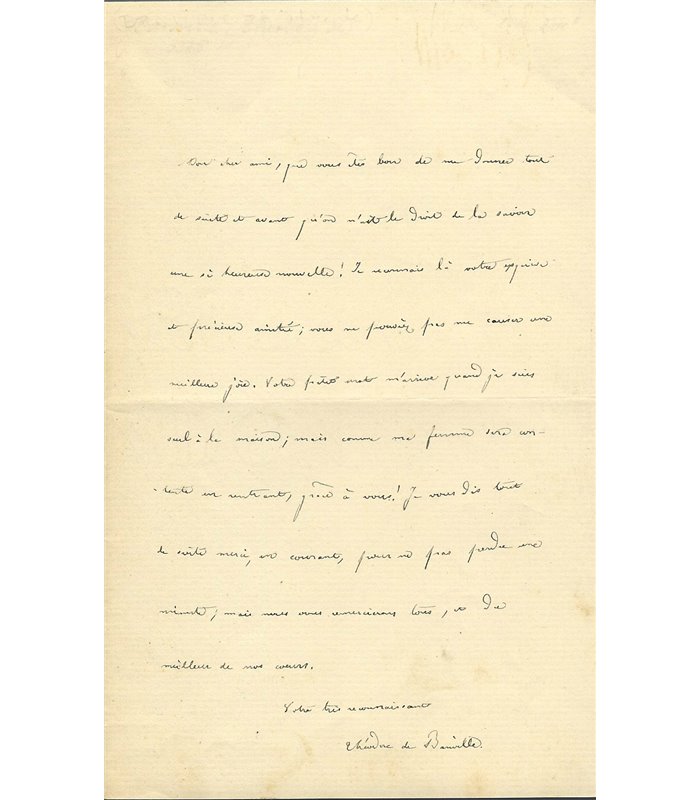 Mon cher ami, que vous êtes bon de me donner tout
de suite et avant qu'on n'ait le droit de la savoir
une si heureuse nouvelle! Je reconnais là votre exquise
et précieuse amitié; vous ne pouviez pas me causer une
meilleure joie. Votre petit mot m'arrive quand je suis
seul à la maison; mais comme ma femme sera con-
tente en rentrant, grâce à vous! Je vous dis tout
de suite merci, en courant, pour ne pas perdre une
minute; mais nous vous remercierons tous, et du
meilleur de nos cœurs.
Votre très reconnaissant
Théodore de Banville.